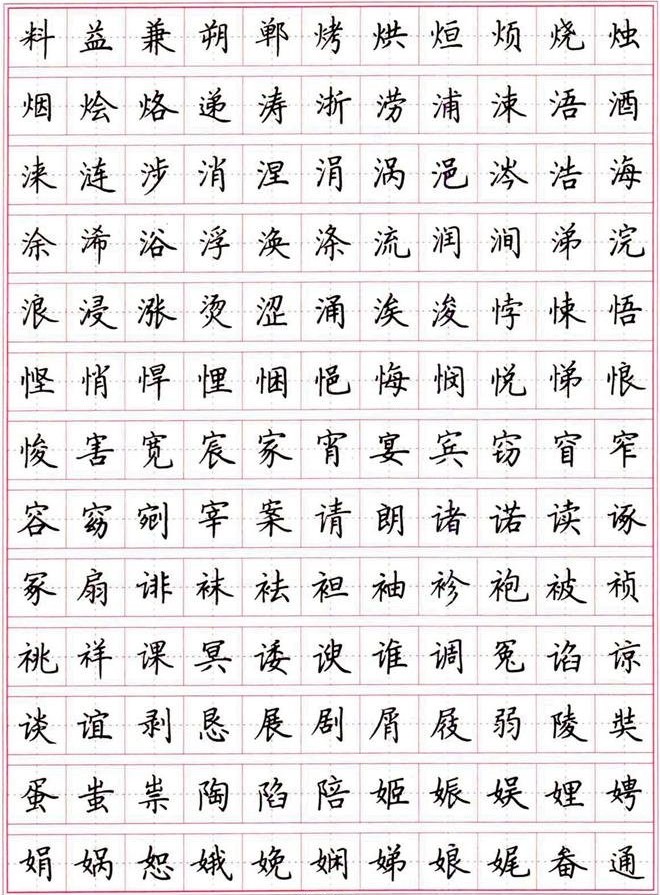 料益兼朔郸烤烘烜烦烧烛
烟烩烙递涛浙涝浦涑浯酒
涞涟涉消涅涓涡浥涔浩海
涂浠浴浮涣涤流润涧涕浣
浪浸涨烫涩涌涘浚悖悚悟
悭悄悍悝悃悒悔悯悦悌悢
悛害宽宸家宵宴宾窍窅窄
容窈剜宰案请朗诸诺读诼
冢扇诽袜袪袒袖袗袍被祯
祧祥课冥诿谀谁调冤谄谅
谈谊剥恳展剧屑屐弱陵奘
蛋蚩祟陶陷陪姬娠娱娌娉
娟娲恕娥娩娴娣娘娓畚通